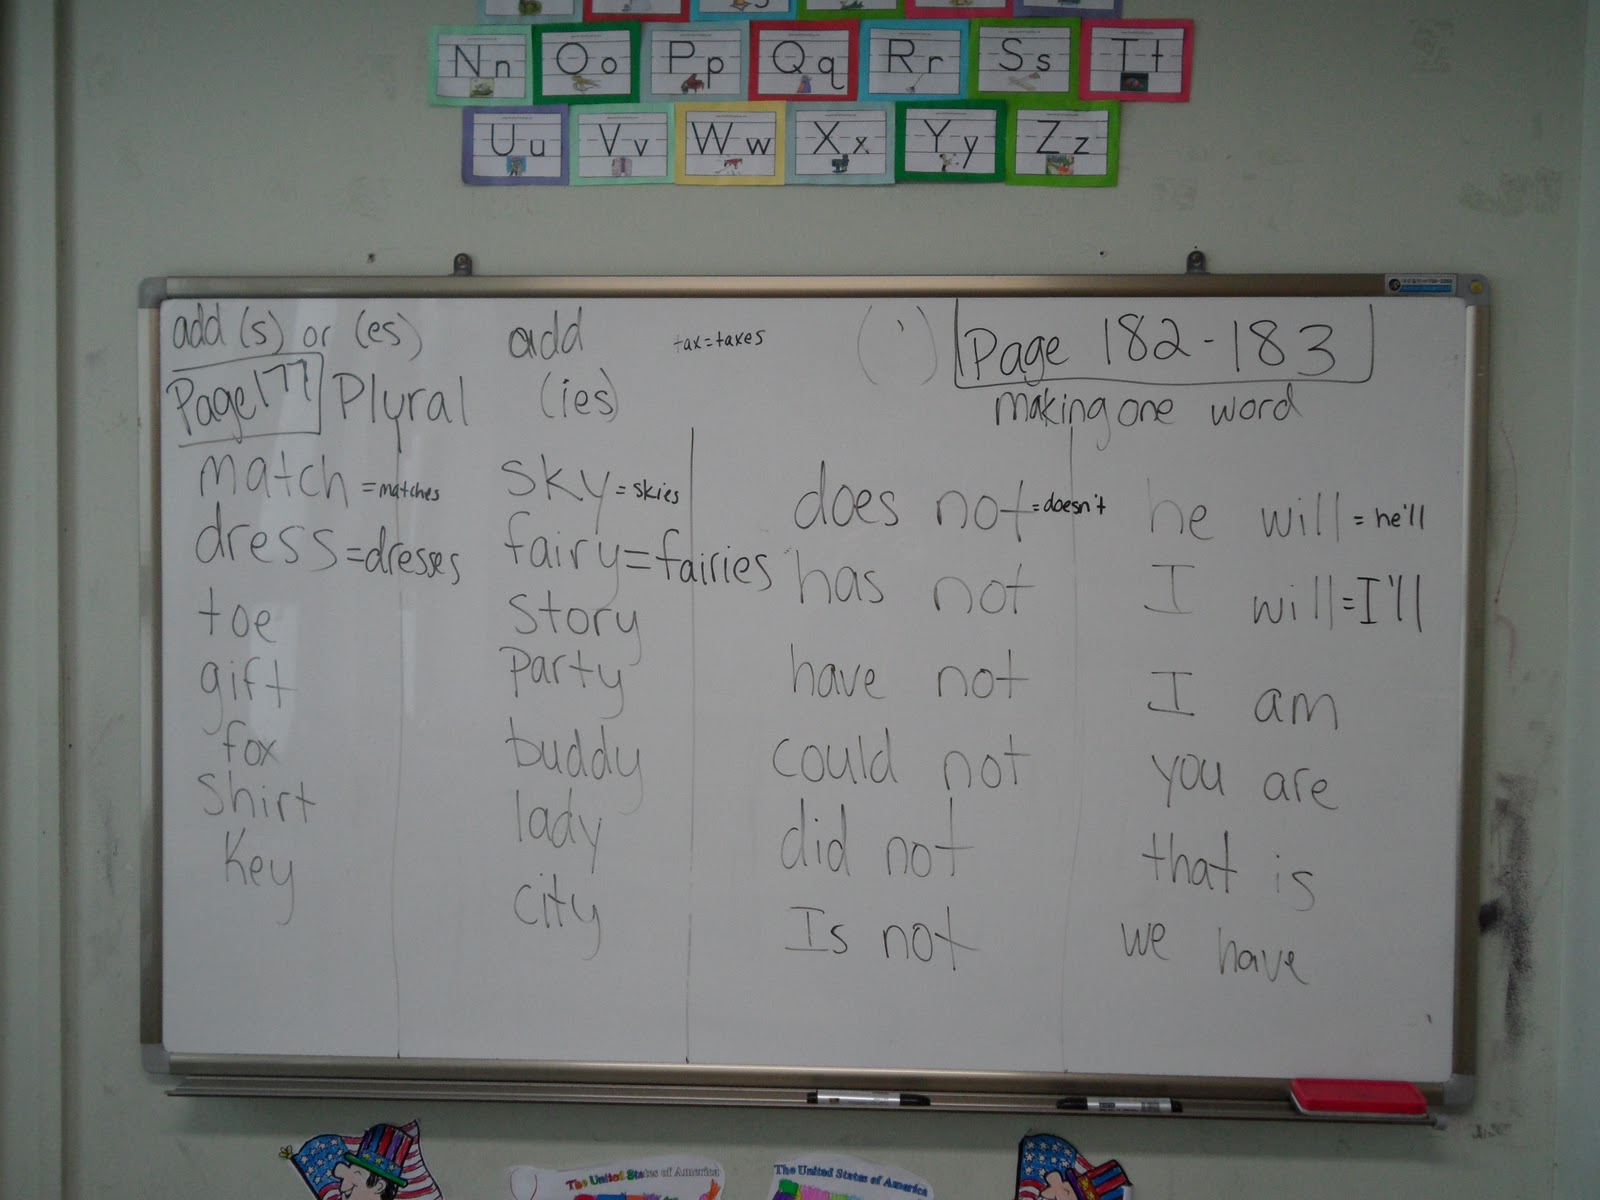 Nn Oo Pp Qq Rr Ss Tt
Uu Vv Ww Xx Yy Zz
add (s) or (es)
Page 177
Plural
match = matches
dress = dresses
toe
gift
fox
shirt
key
add
(ies)
tax = taxes
sky = skies
fairy = fairies
story
party
buddy
lady
city
(')
Page 182 - 183
making one word
does not = doesn't
has not
have not
could not
did not
Is not
he will = he'll
I will = I'll
I am
you are
that is
we have
The United States of America
The United States of America